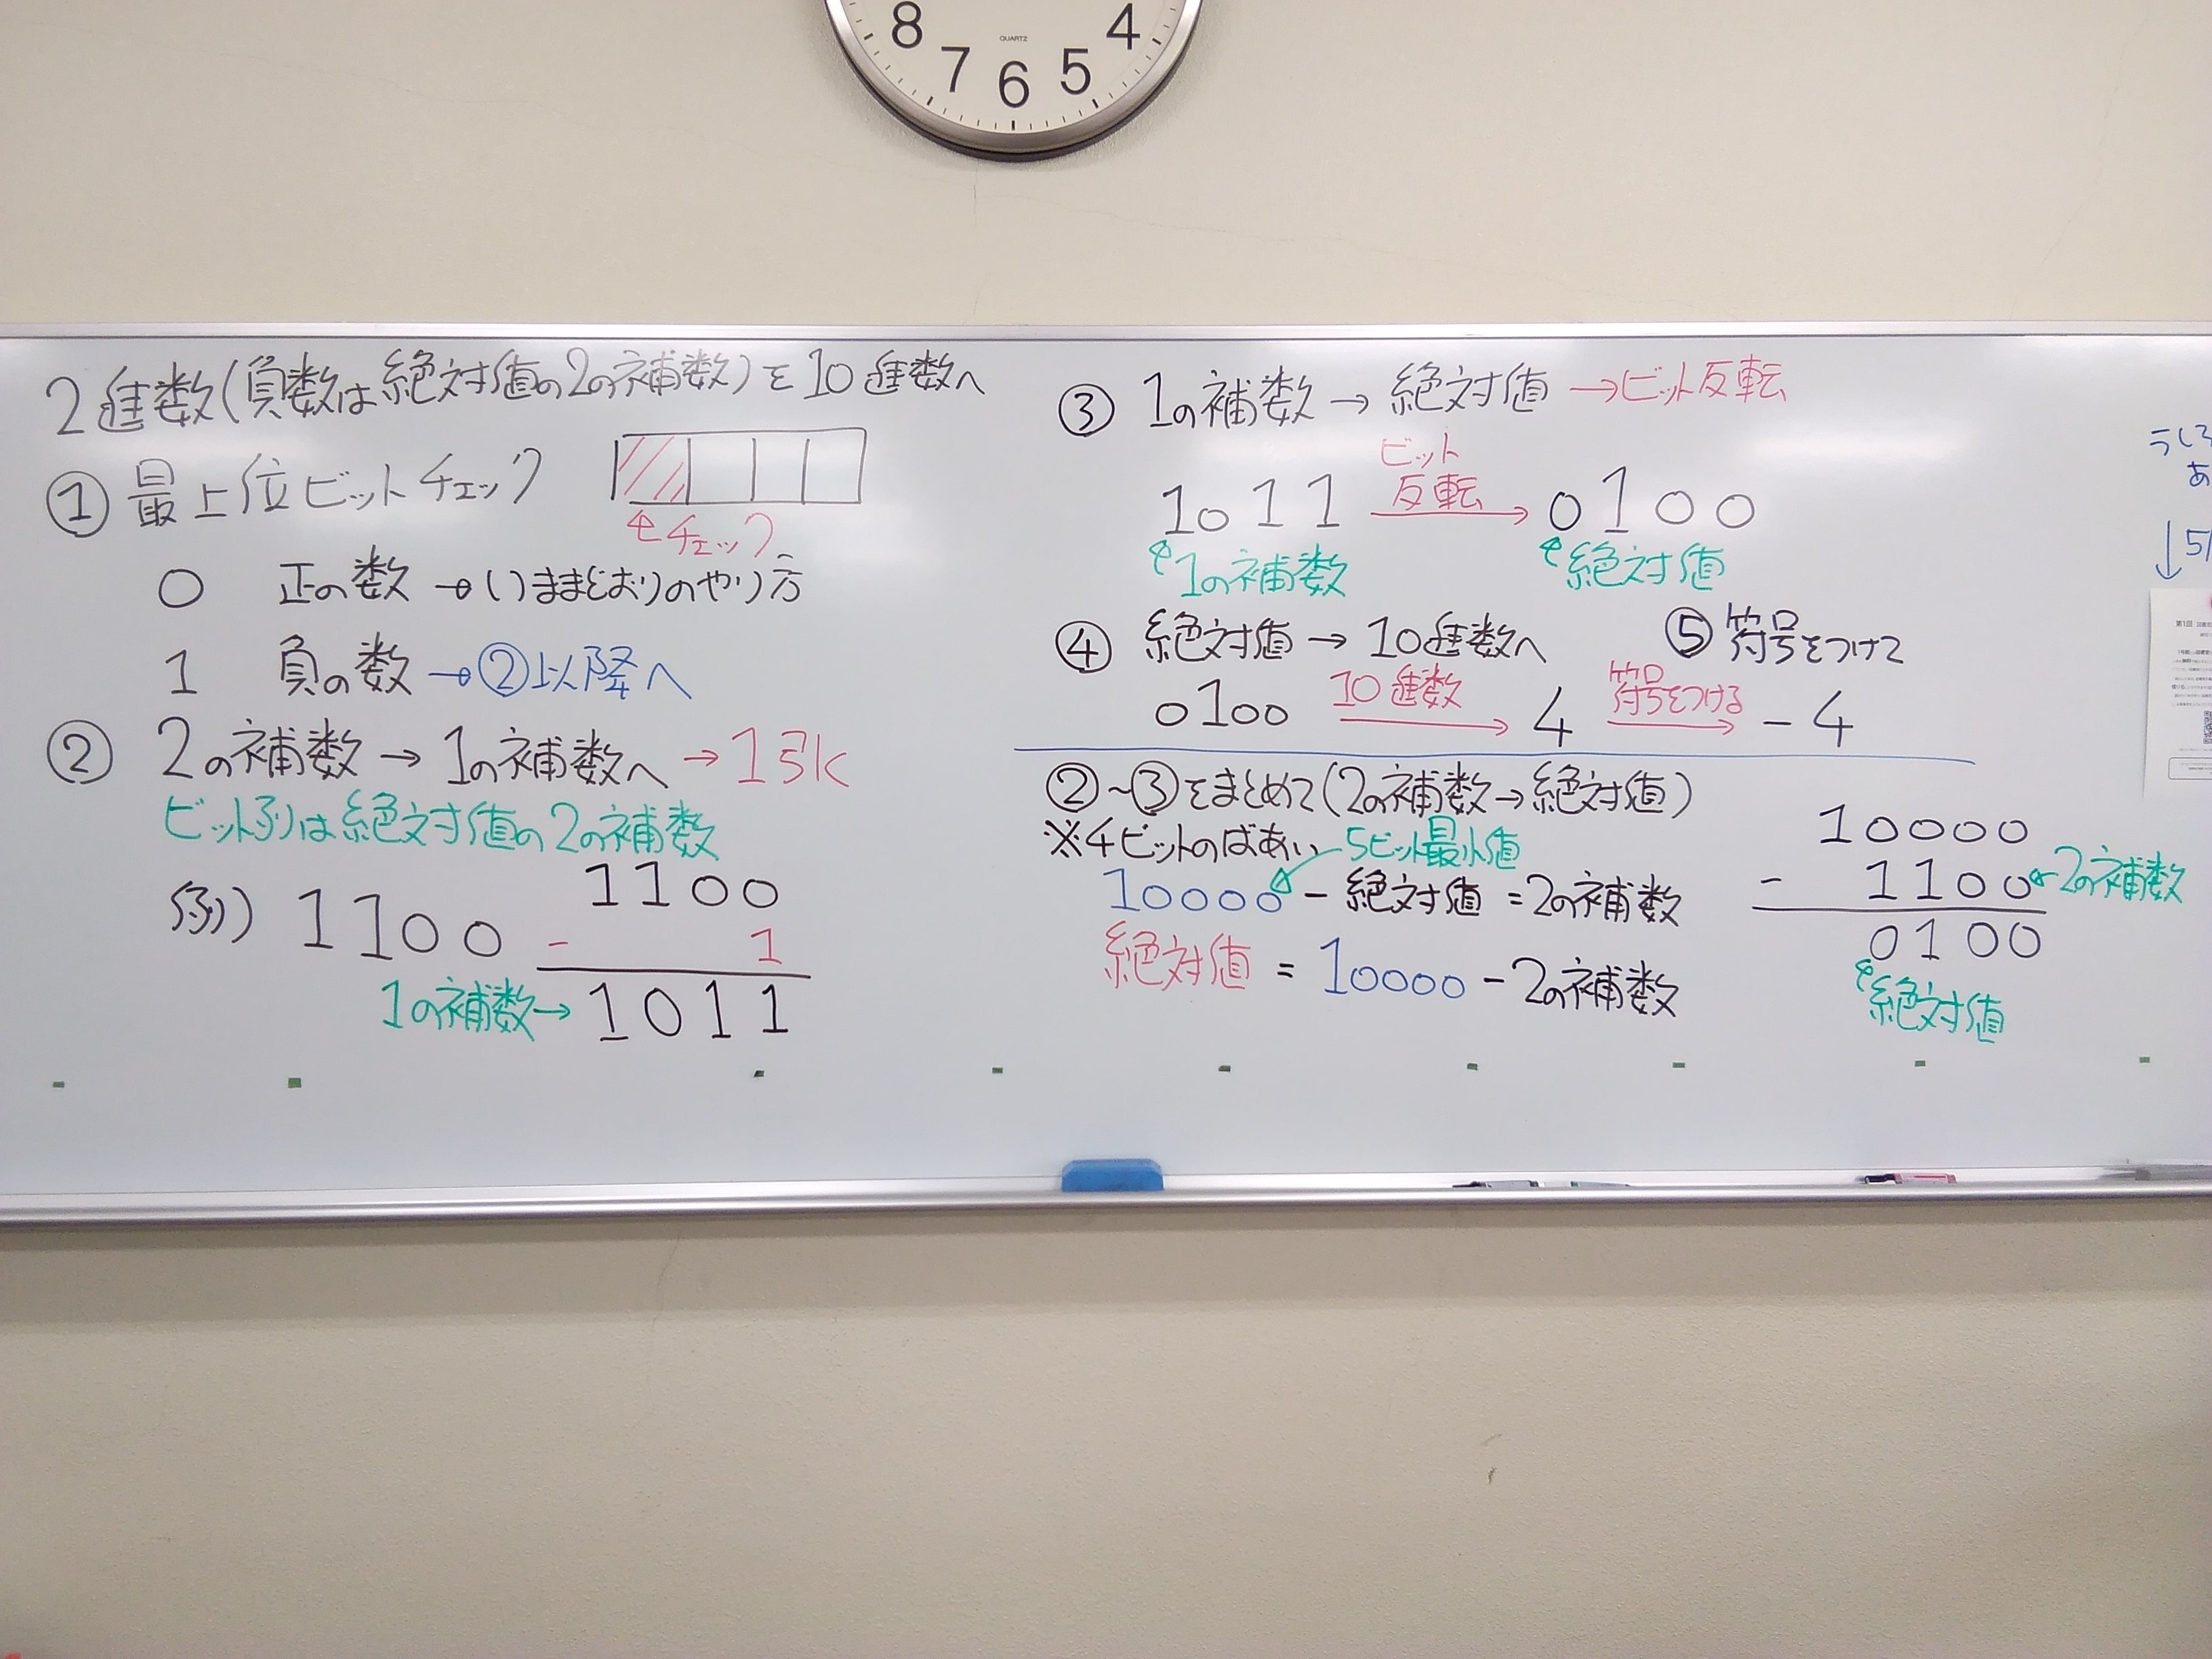 8 7 6 5 4
QUARTZ
2進数(負数は絶対値の2の補数)を10進数へ
① 最上位ビットチェック
チェック
0 正の数 → いままでどおりのやり方
1 負の数 → ②以降へ
② 2の補数 → 1の補数へ → 1引く
ビット列は絶対値の2の補数
例) 1100
1100
- 1
1の補数→ 1011
③ 1の補数 → 絶対値 → ビット反転
1011 ビット反転 → 0100
1の補数 絶対値
④ 絶対値 → 10進数へ ⑤ 符号をつけて
0100 10進数 → 4 符号をつける → -4
②~③をまとめて(2の補数→絶対値)
※4ビットのばあい 5ビット最小値
10000 - 絶対値 = 2の補数
絶対値 = 10000 - 2の補数
10000
- 1100 ← 2の補数
0100
絶対値
うしろ
あ
↓ 5/
第1回